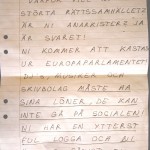 VARFÖR VILL NI
STÖRTA RÄTTSSAMHÄLLET?
ÄR NI ANARKISTER? JA
ÄR SVARET!
NI KOMMER ATT KASTAS
UR EUROPAPARLAMENTET!
DJ:R, MUSIKER OCH
SKIVBOLAG MÅSTE HA
SINA LÖNER, DE KAN
INTE GÅ PÅ SOCIALEN!
NI HAR EN YTTERST
FUL LOGGA OCH NI